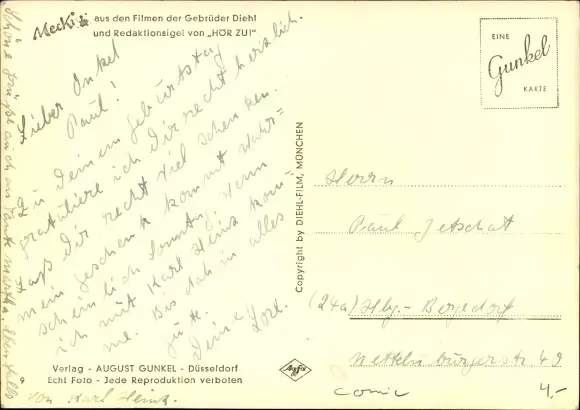 Mecki aus den Filmen der Gebrüder Diehl
und Redaktionsigel von „HÖR ZU!"
Lieber Onkel
Paul!
Zu Deinem Geburtstag
gratuliere ich Dir recht herzlich.
Laß Dir recht viel schenken.
mein Geschenk kommt wahr=
scheinlich Sonntag, wenn
ich mit Karl Heinz kom=
me. Bis dahin alles
gute.
Deine Lore.
Schöne Grüße auch an Tante Martha. Ebenfalls
von Karl Heinz.
Verlag - AUGUST GUNKEL - Düsseldorf
Echt Foto - Jede Reproduktion verboten
9
Copyright by DIEHL-FILM, MÜNCHEN
Agfa
EINE
Gunkel
KARTE
Herrn
Paul Jetschat
(24a) Hbg.- Bergedorf
Nettelnburgerstr 49
comic
4.-